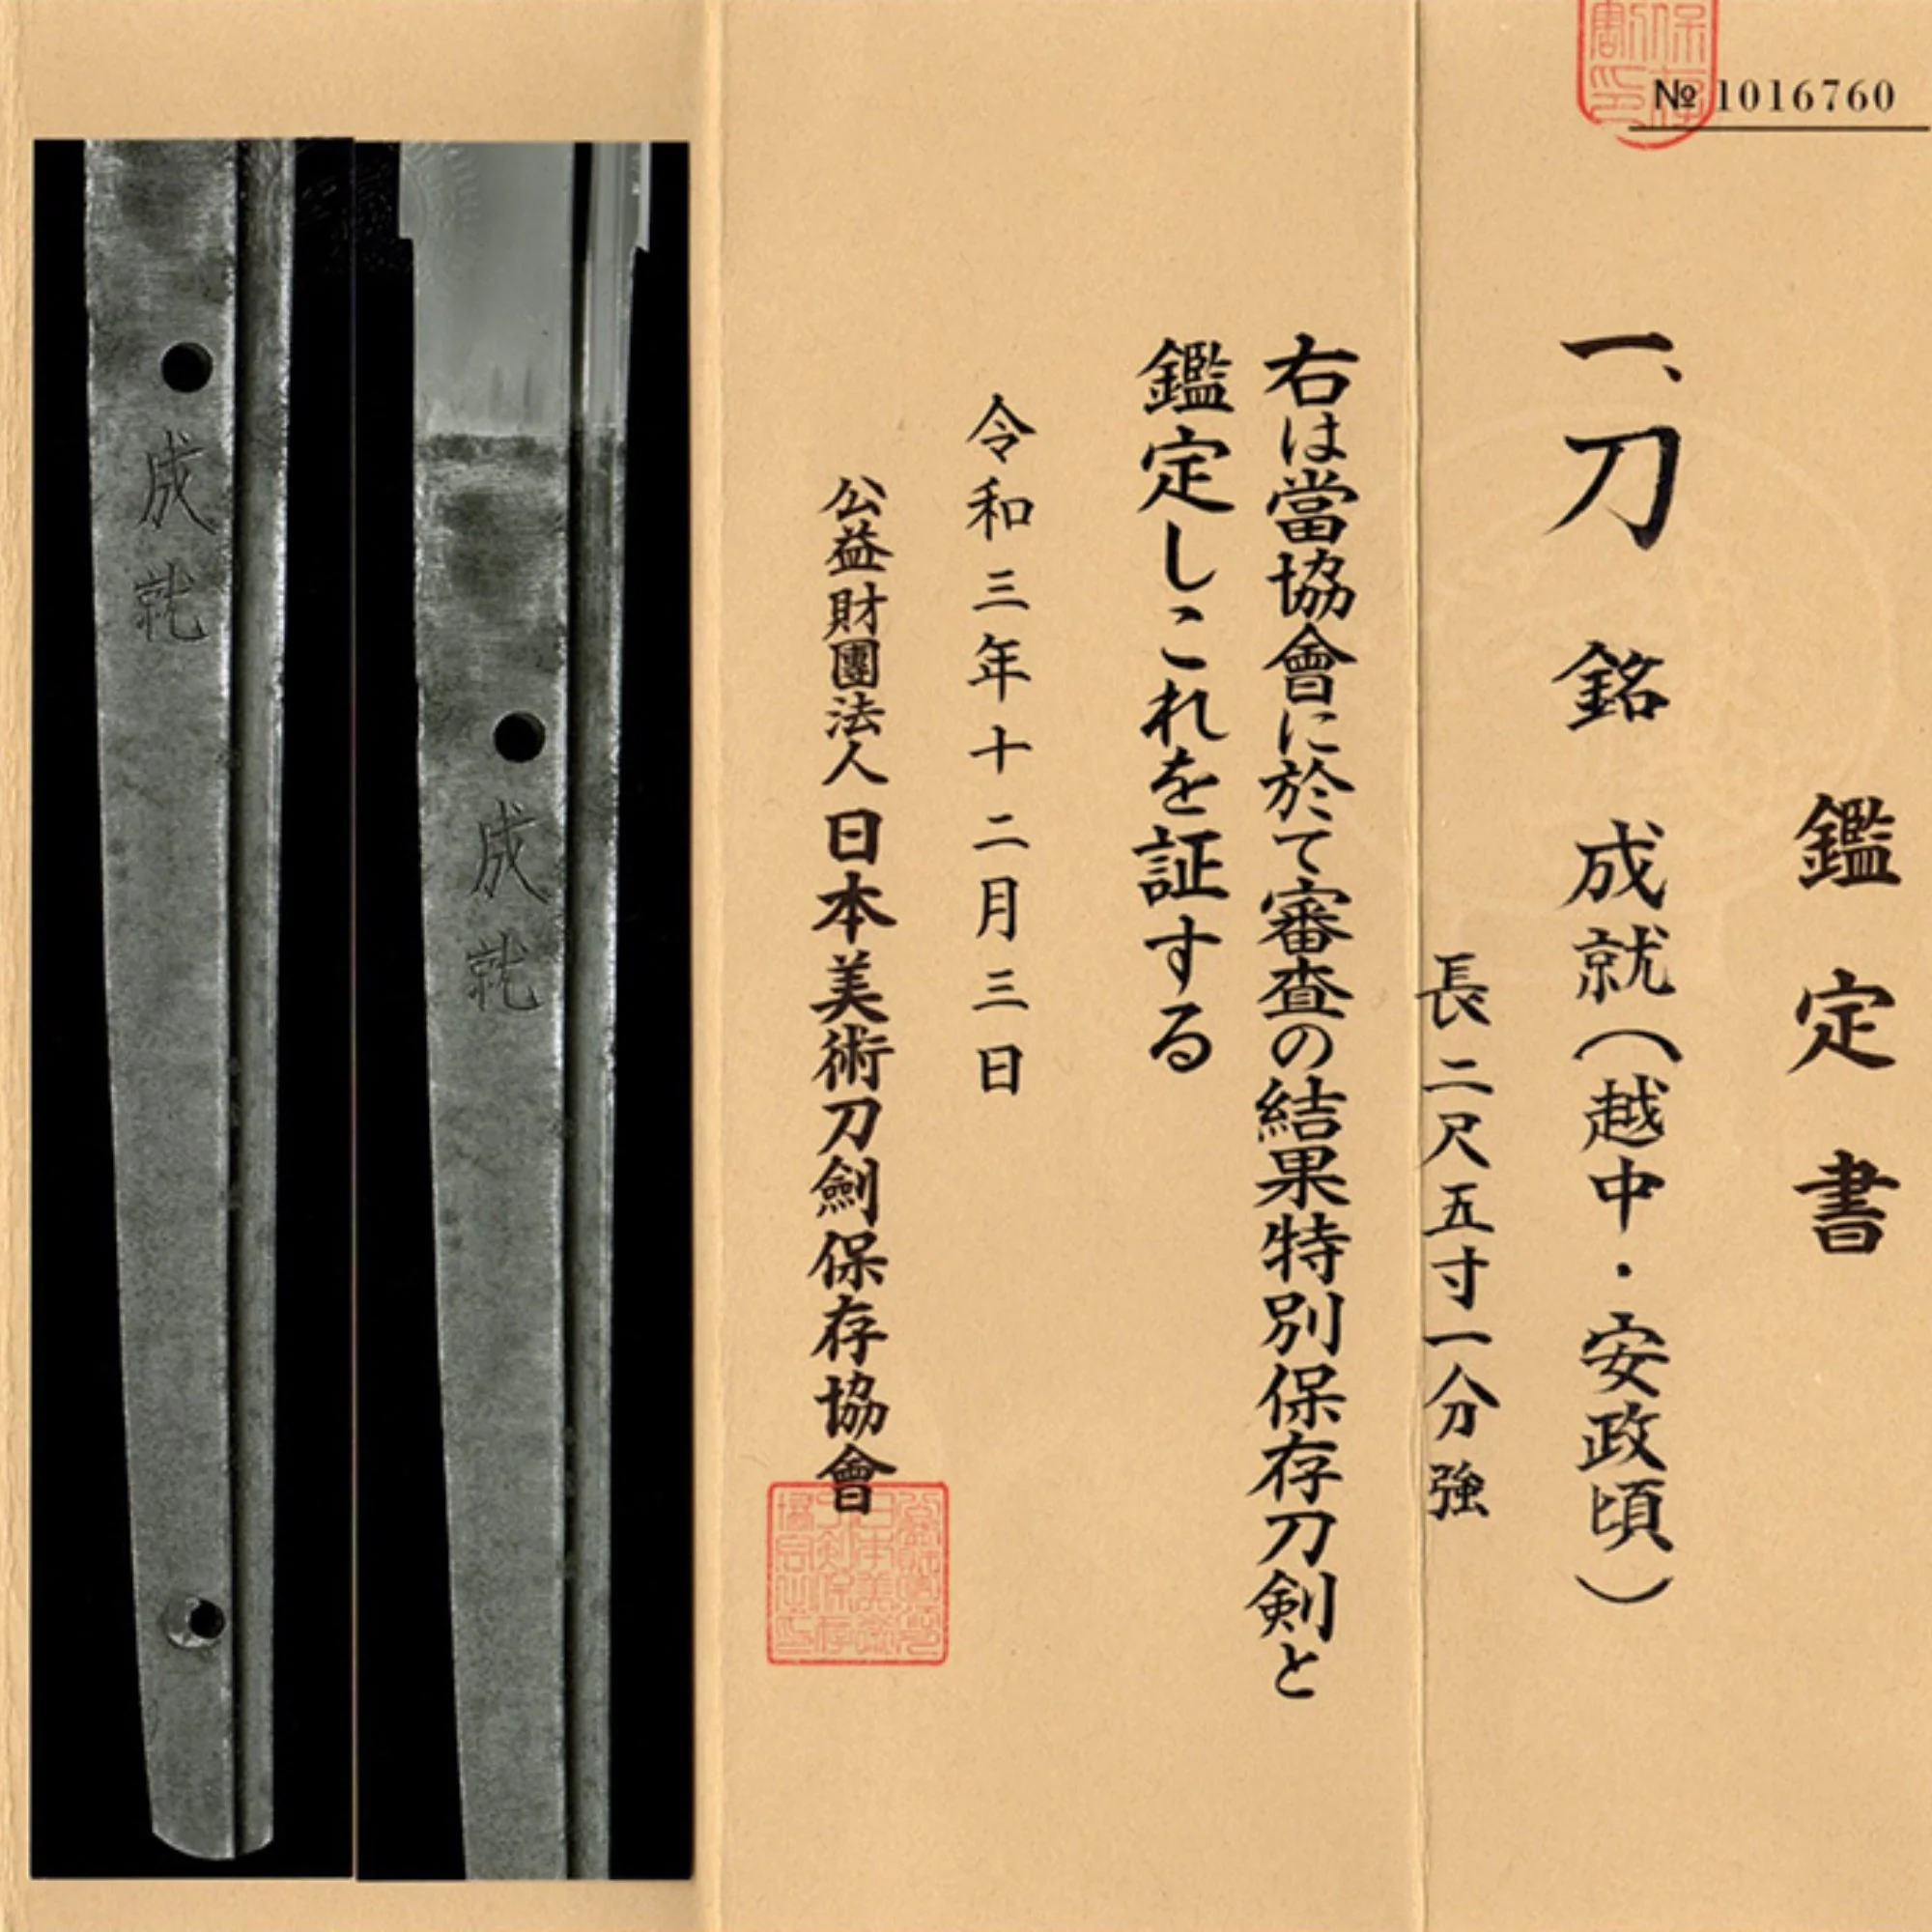 № 1016760
鑑定書
一、刀 銘 成就(越中・安政頃)
長二尺五寸一分強
右は當協會に於て審査の結果特別保存刀剣と
鑑定しこれを証する
令和三年十二月三日
公益財團法人 日本美術刀劍保存協會
成就
成就